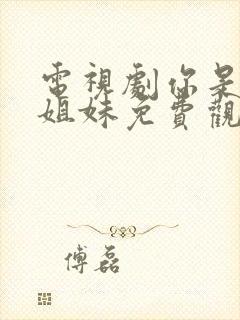 電視劇你是
姐妹免費觀
傅磊